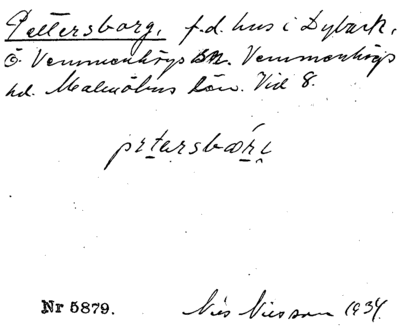 Pettersborg, f.d. hus i Dybeck,
Ö. Vemmenhögs sn. Vemmenhögs
hd. Malmöhus län. Vid 8.
pɛtarsbærj
Nr 5879.
Nils Nilsson 1934.